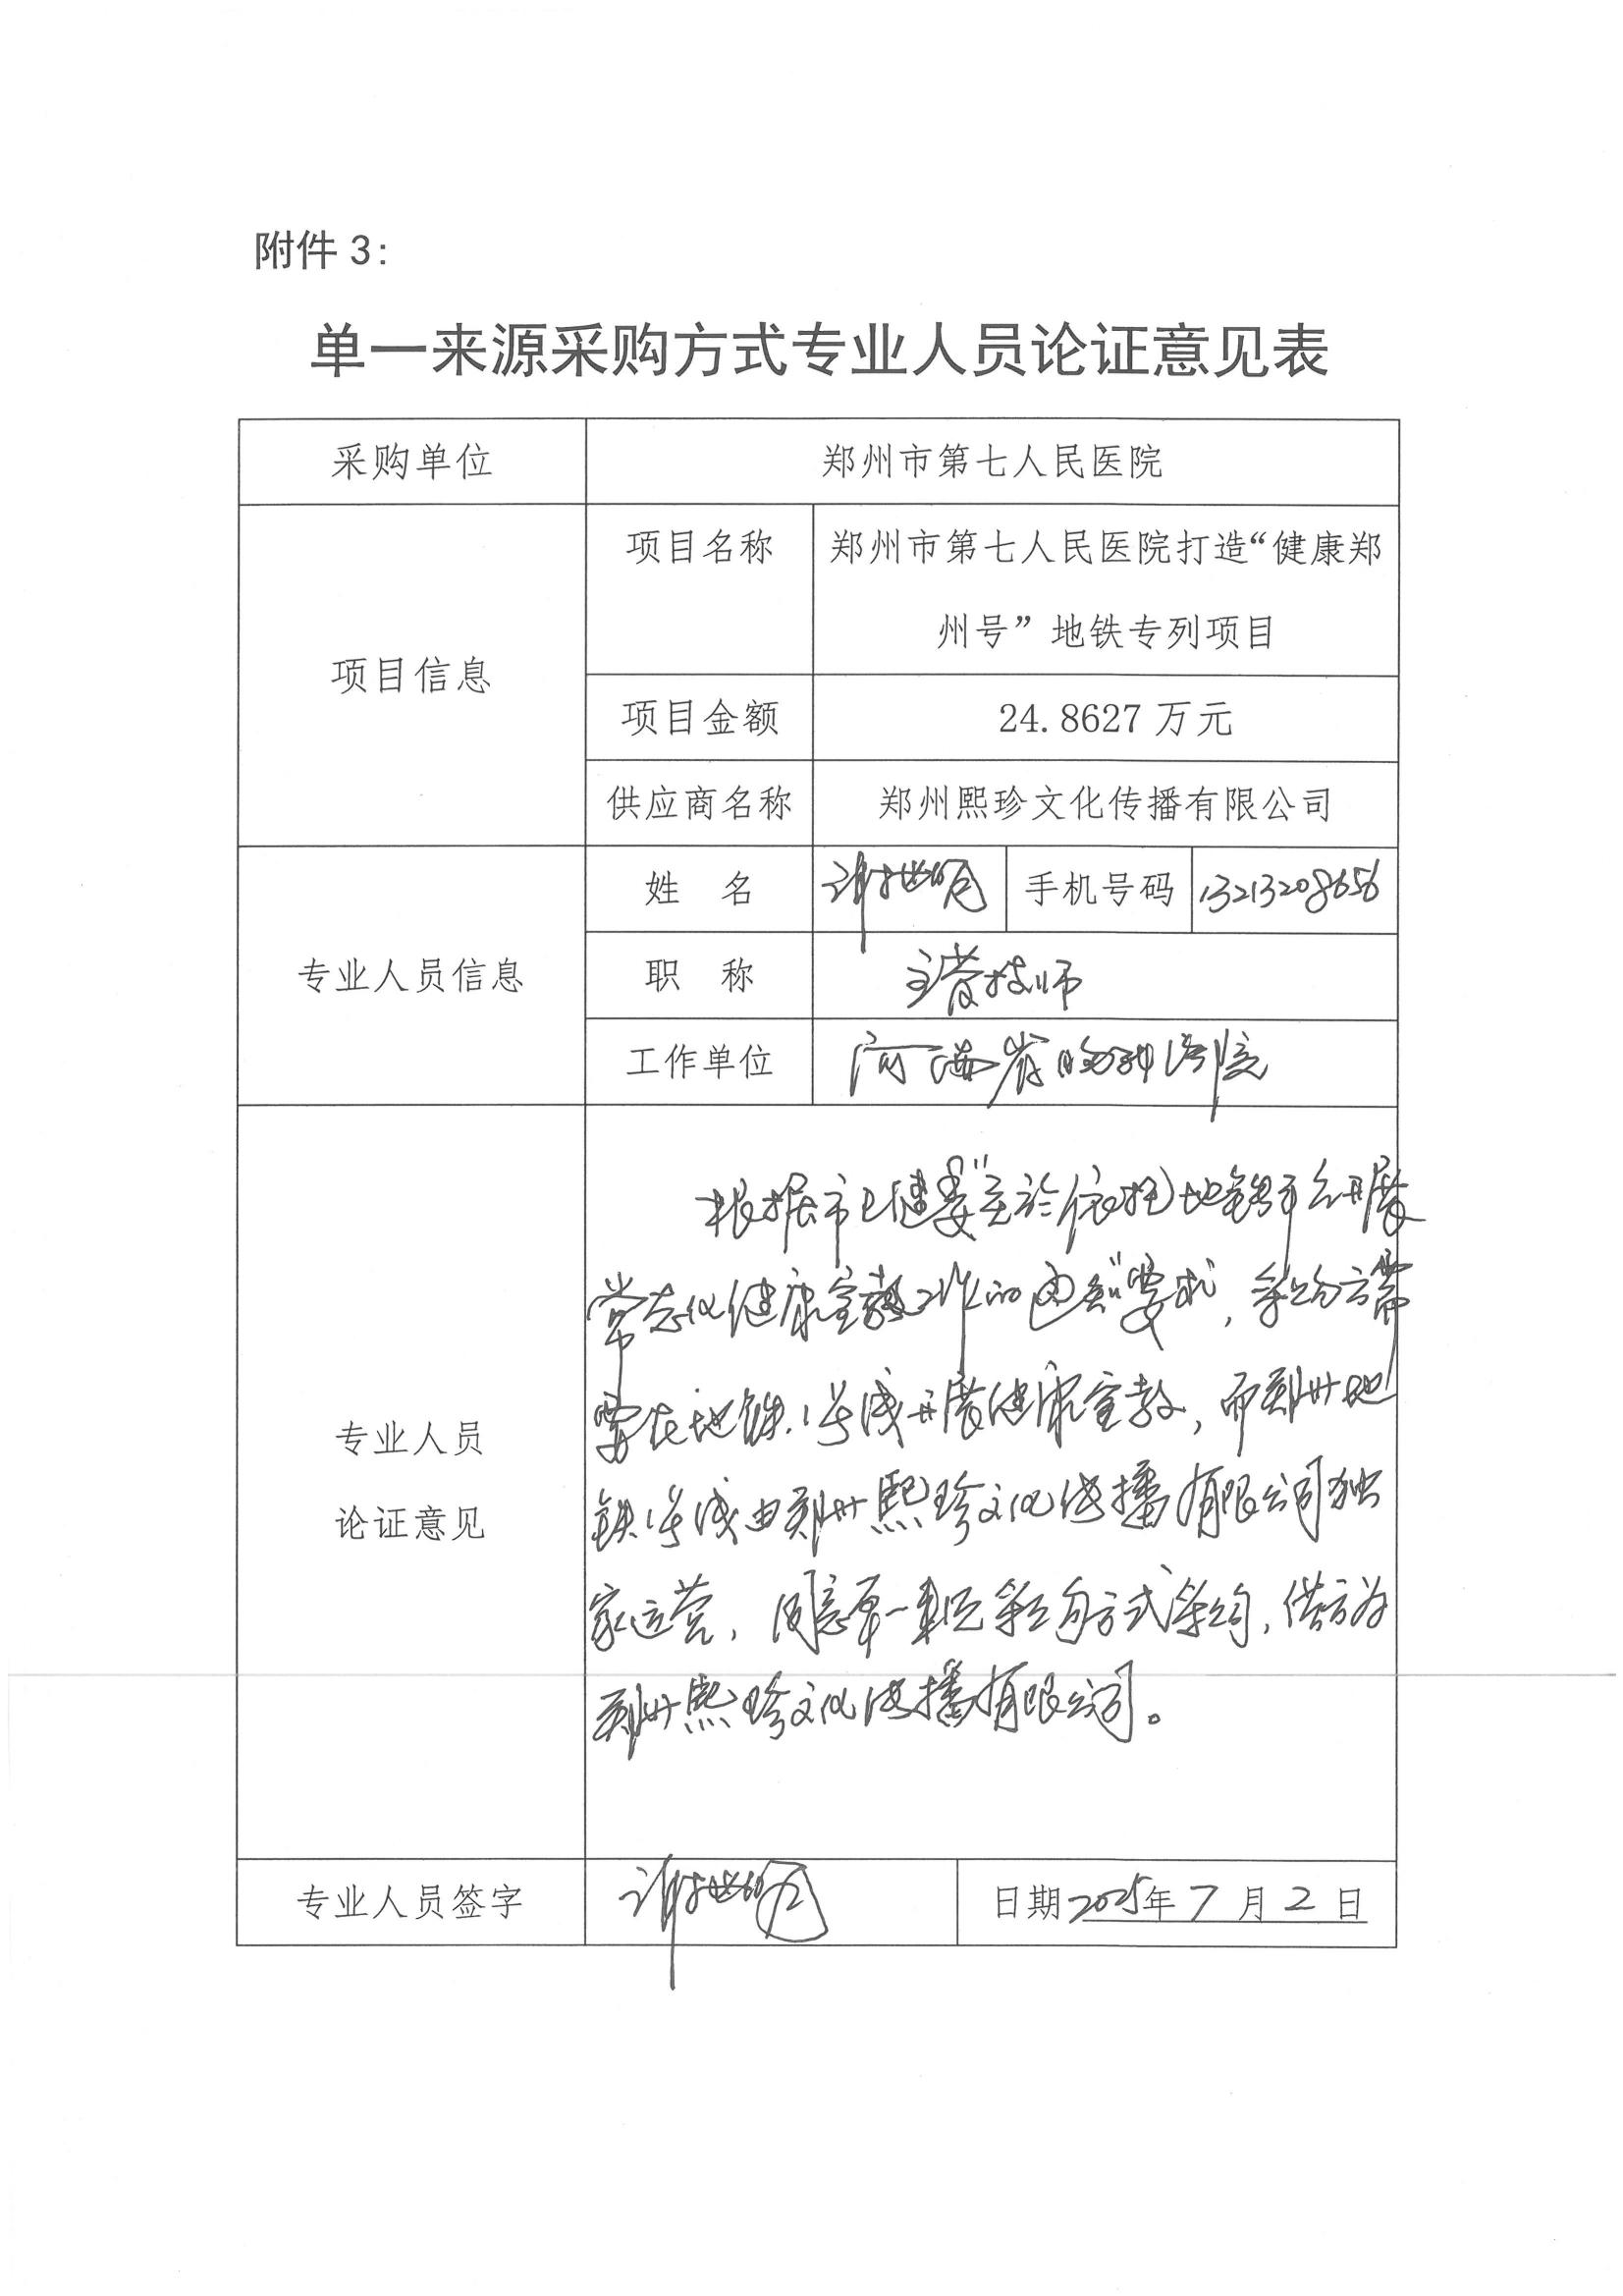 附件 3:
单一来源采购方式专业人员论证意见表
采购单位 郑州市第七人民医院
项目信息
项目名称 郑州市第七人民医院打造“健康郑
州号”地铁专列项目
项目金额 24.8627 万元
供应商名称 郑州熙珍文化传播有限公司
专业人员信息
姓 名 手机号码 13213208656
职 称 主管技师
工作单位 河南省胸科医院
专业人员
论证意见
根据市卫健委“关于依托地铁平台开展
常态化健康宣教工作的通知”要求，采购方需
要在地铁1号线开展健康宣教，而郑州地
铁1号线由郑州熙珍文化传播有限公司独
家运营，同意单一来源采购方式采购，供方为
郑州熙珍文化传播有限公司。
专业人员签字 日期 2025年 7 月 2 日